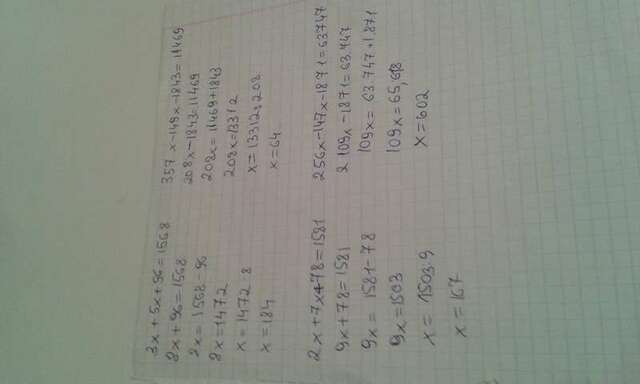 3x+5x+96=1568
8x+96=1568
8x=1568-96
8x=1472
x=1472 8
x=184
357x-149x-1843=11469
208x-1843=11469
208x=11469+1843
208x=13312
x=13312:208
x=64
2x+7x+78=1581
9x+78=1581
9x=1581-78
9x=1503
x=1503:9
x=167
256x-147x-1871=63747
109x-1871=63.747
109x=63.747+1.871
109x=65,618
x=602